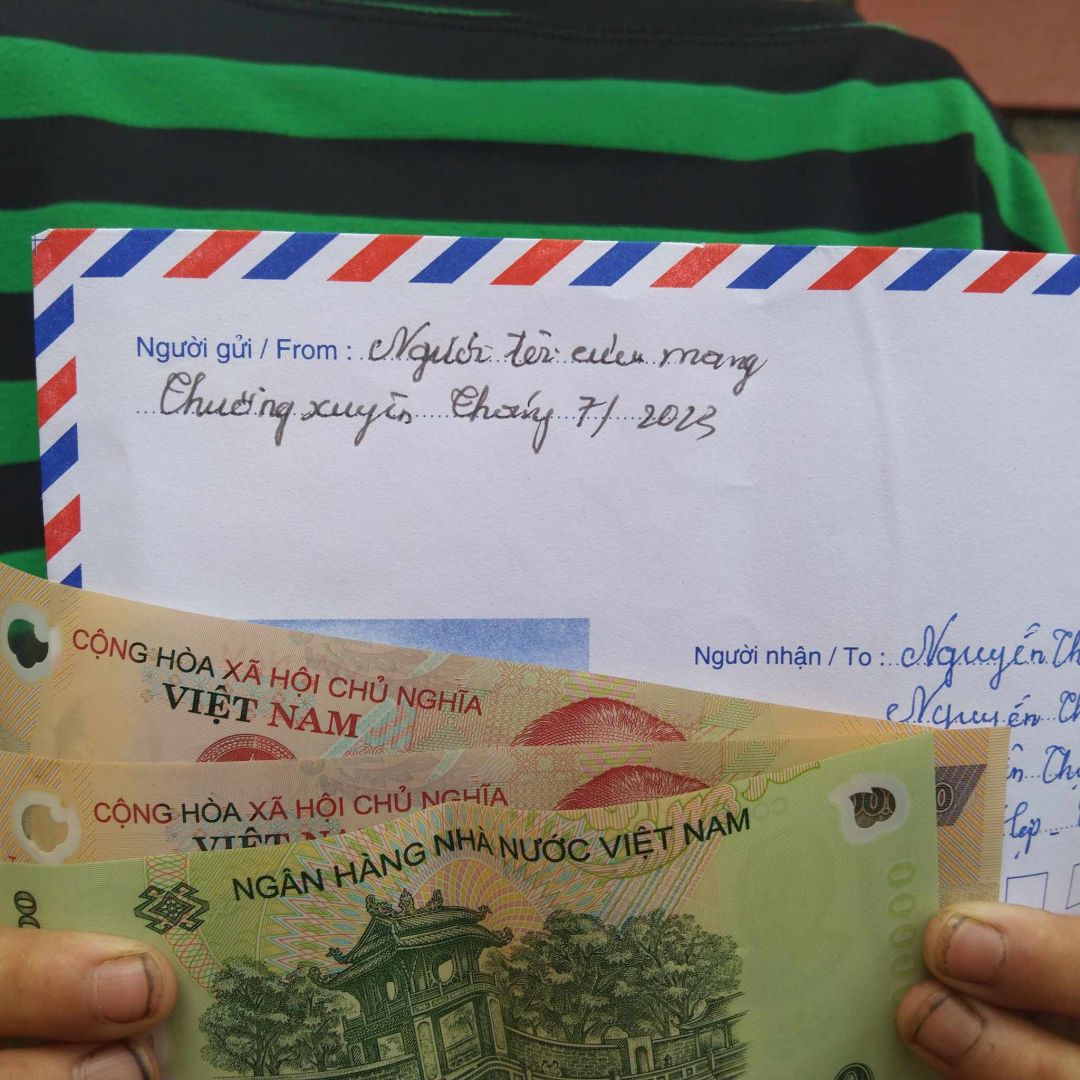 Người gửi / From : Người tôi cưu mang
Thường xuyên Tháng 7/ 2023
Người nhận / To : Nguyễn Th
Nguyễn Th
Th
CỘNG HÒA XÃ HỘI CHỦ NGHĨA
VIỆT NAM
CỘNG HÒA XÃ HỘI CHỦ NGHĨA
VIỆT NAM
NGÂN HÀNG NHÀ NƯỚC VIỆT NAM